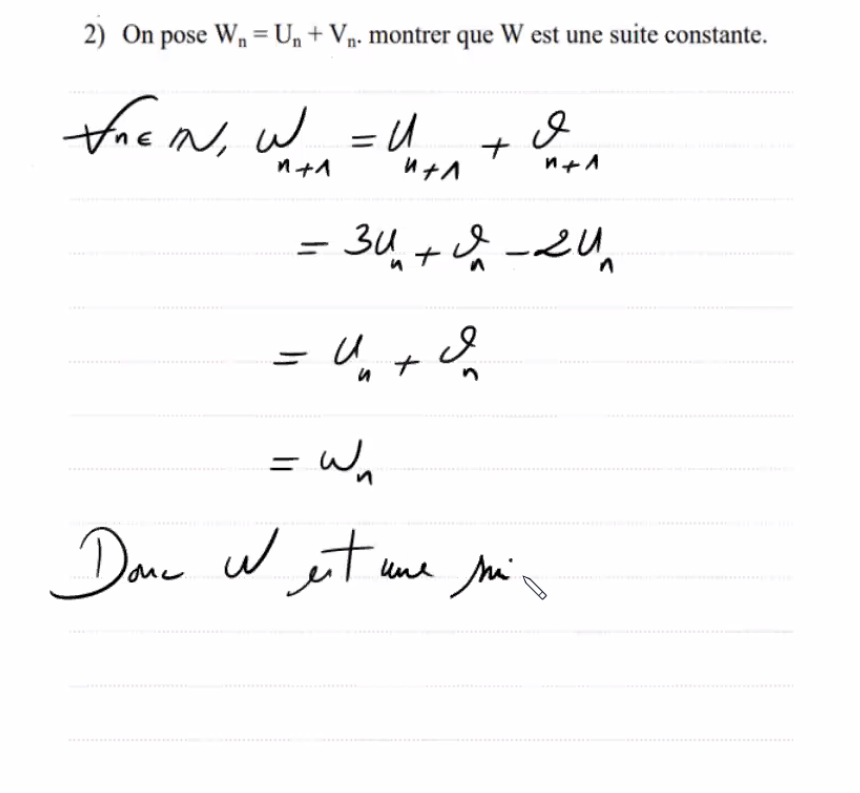 2) On pose Wₙ = Uₙ + Vₙ. montrer que W est une suite constante.
∀n ∈ ℕ, Wₙ₊₁ = Uₙ₊₁ + ϑₙ₊₁
= 3Uₙ + ϑₙ - 2Uₙ
= Uₙ + ϑₙ
= Wₙ
Donc W est une sui